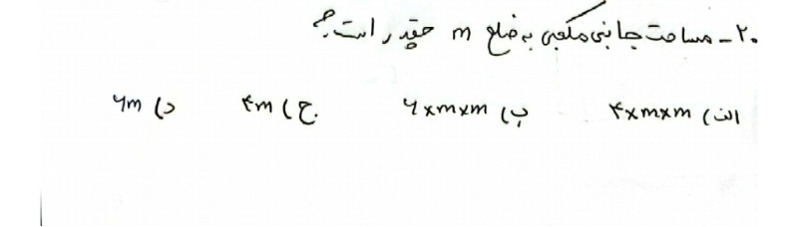 ۲۰- مساحت جانبی مکعبی به ضلع m چقدر است؟
الف) ۴×m×m ب) ۶×m×m ج) ۴m د) ۶m